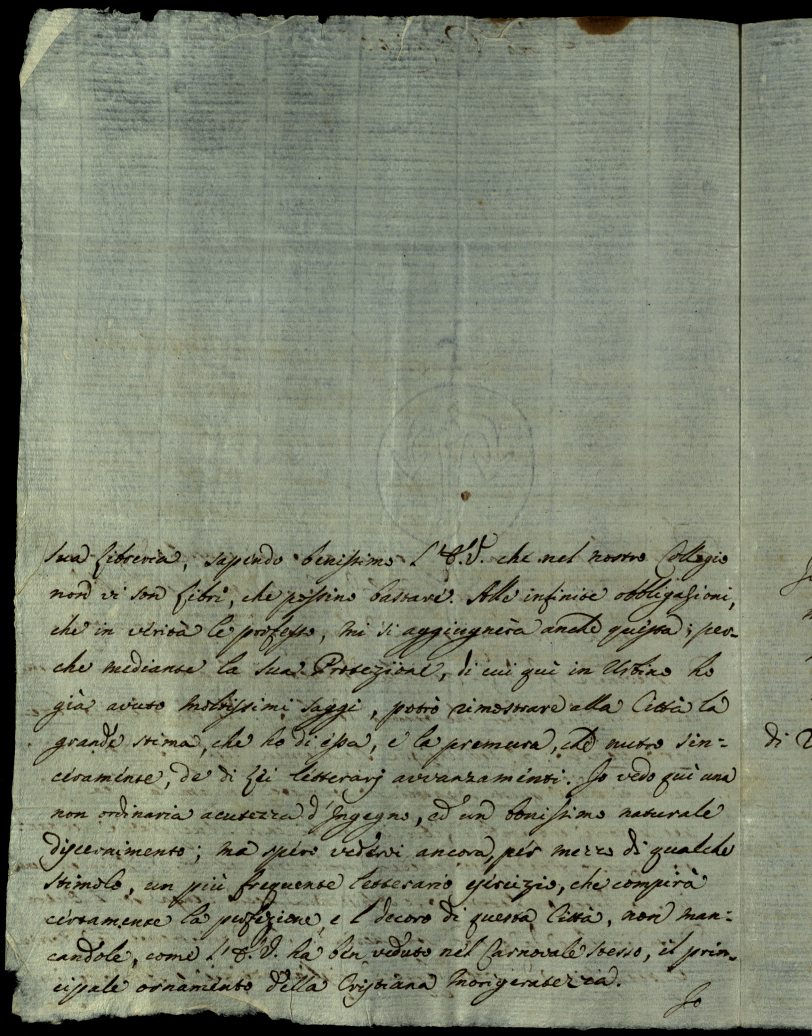 sua Libreria, sapendo benissimo l'E.V. che nel nostro Collegio
non vi son Libri, che possino bastare. Alle infinite obbligazioni,
che in verità le professo, mi si aggiugnerà anche questa; per-
che mediante la sua Protezione, di cui qui in Urbino ho
già avuto moltissimi saggi, potrò rimostrare alla Città la
grande stima, che ho di essa, e la premura, che nutro sin-
ceramente, de di lei letterarj avvanzamenti. Io vedo qui una
non ordinaria acutezza d'Ingegno, ed un bonissimo naturale
discernimento; ma spero vedervi ancora, per mezzo di qualche
stimolo, un più frequente letterario esercizio, che compirà
certamente la perfezione, e l decoro di questa Città, non man-
candole, come l'E.V. ha ben veduto nel Carnovale stesso, il prin-
cipale ornamento della Cristiana morigeratezza.
Io
di